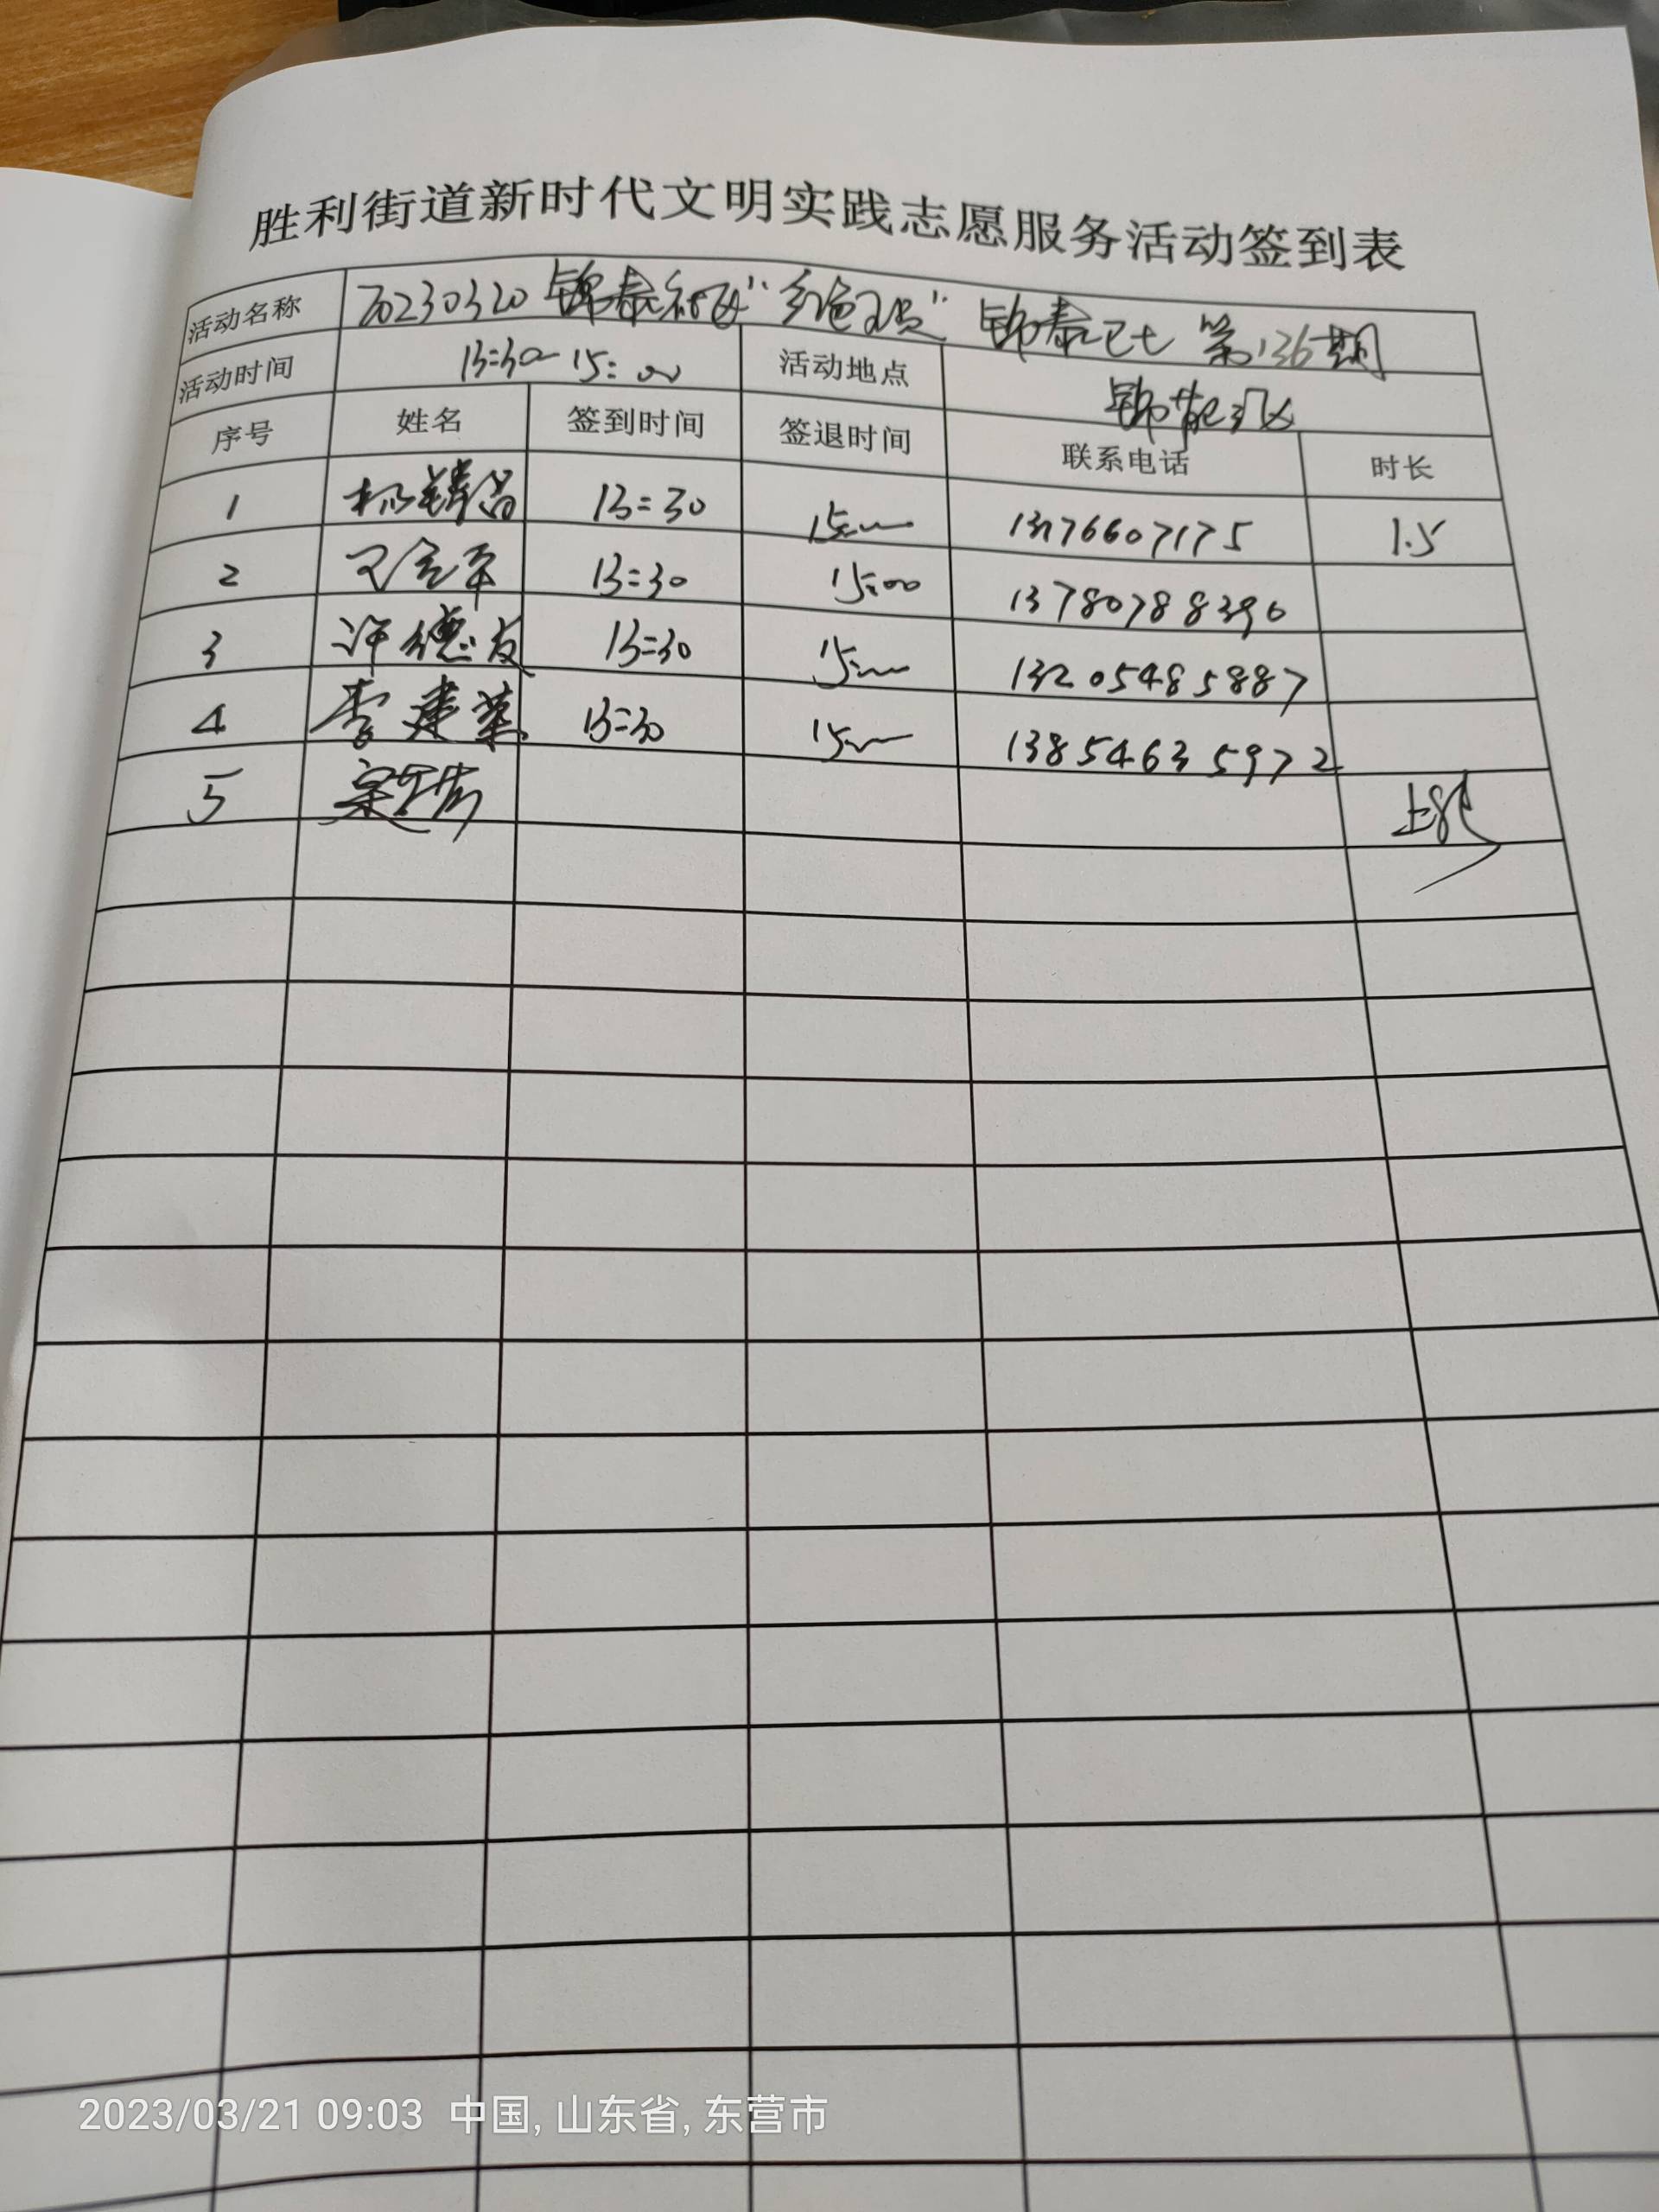 胜利街道新时代文明实践志愿服务活动签到表
活动名称 20230320 锦泰社区"红色" 锦泰 第136期
活动时间 13:30-15:00 活动地点 锦苑
序号 姓名 签到时间 签退时间 联系电话 时长
1 杨 13:30 15:00 13176607175 1.5
2 13:30 15:00 13780788390
3 许德友 13:30 15:00 13205485887
4 李建 13:30 15:00 13854635972
5
2023/03/21 09:03 中国, 山东省, 东营市